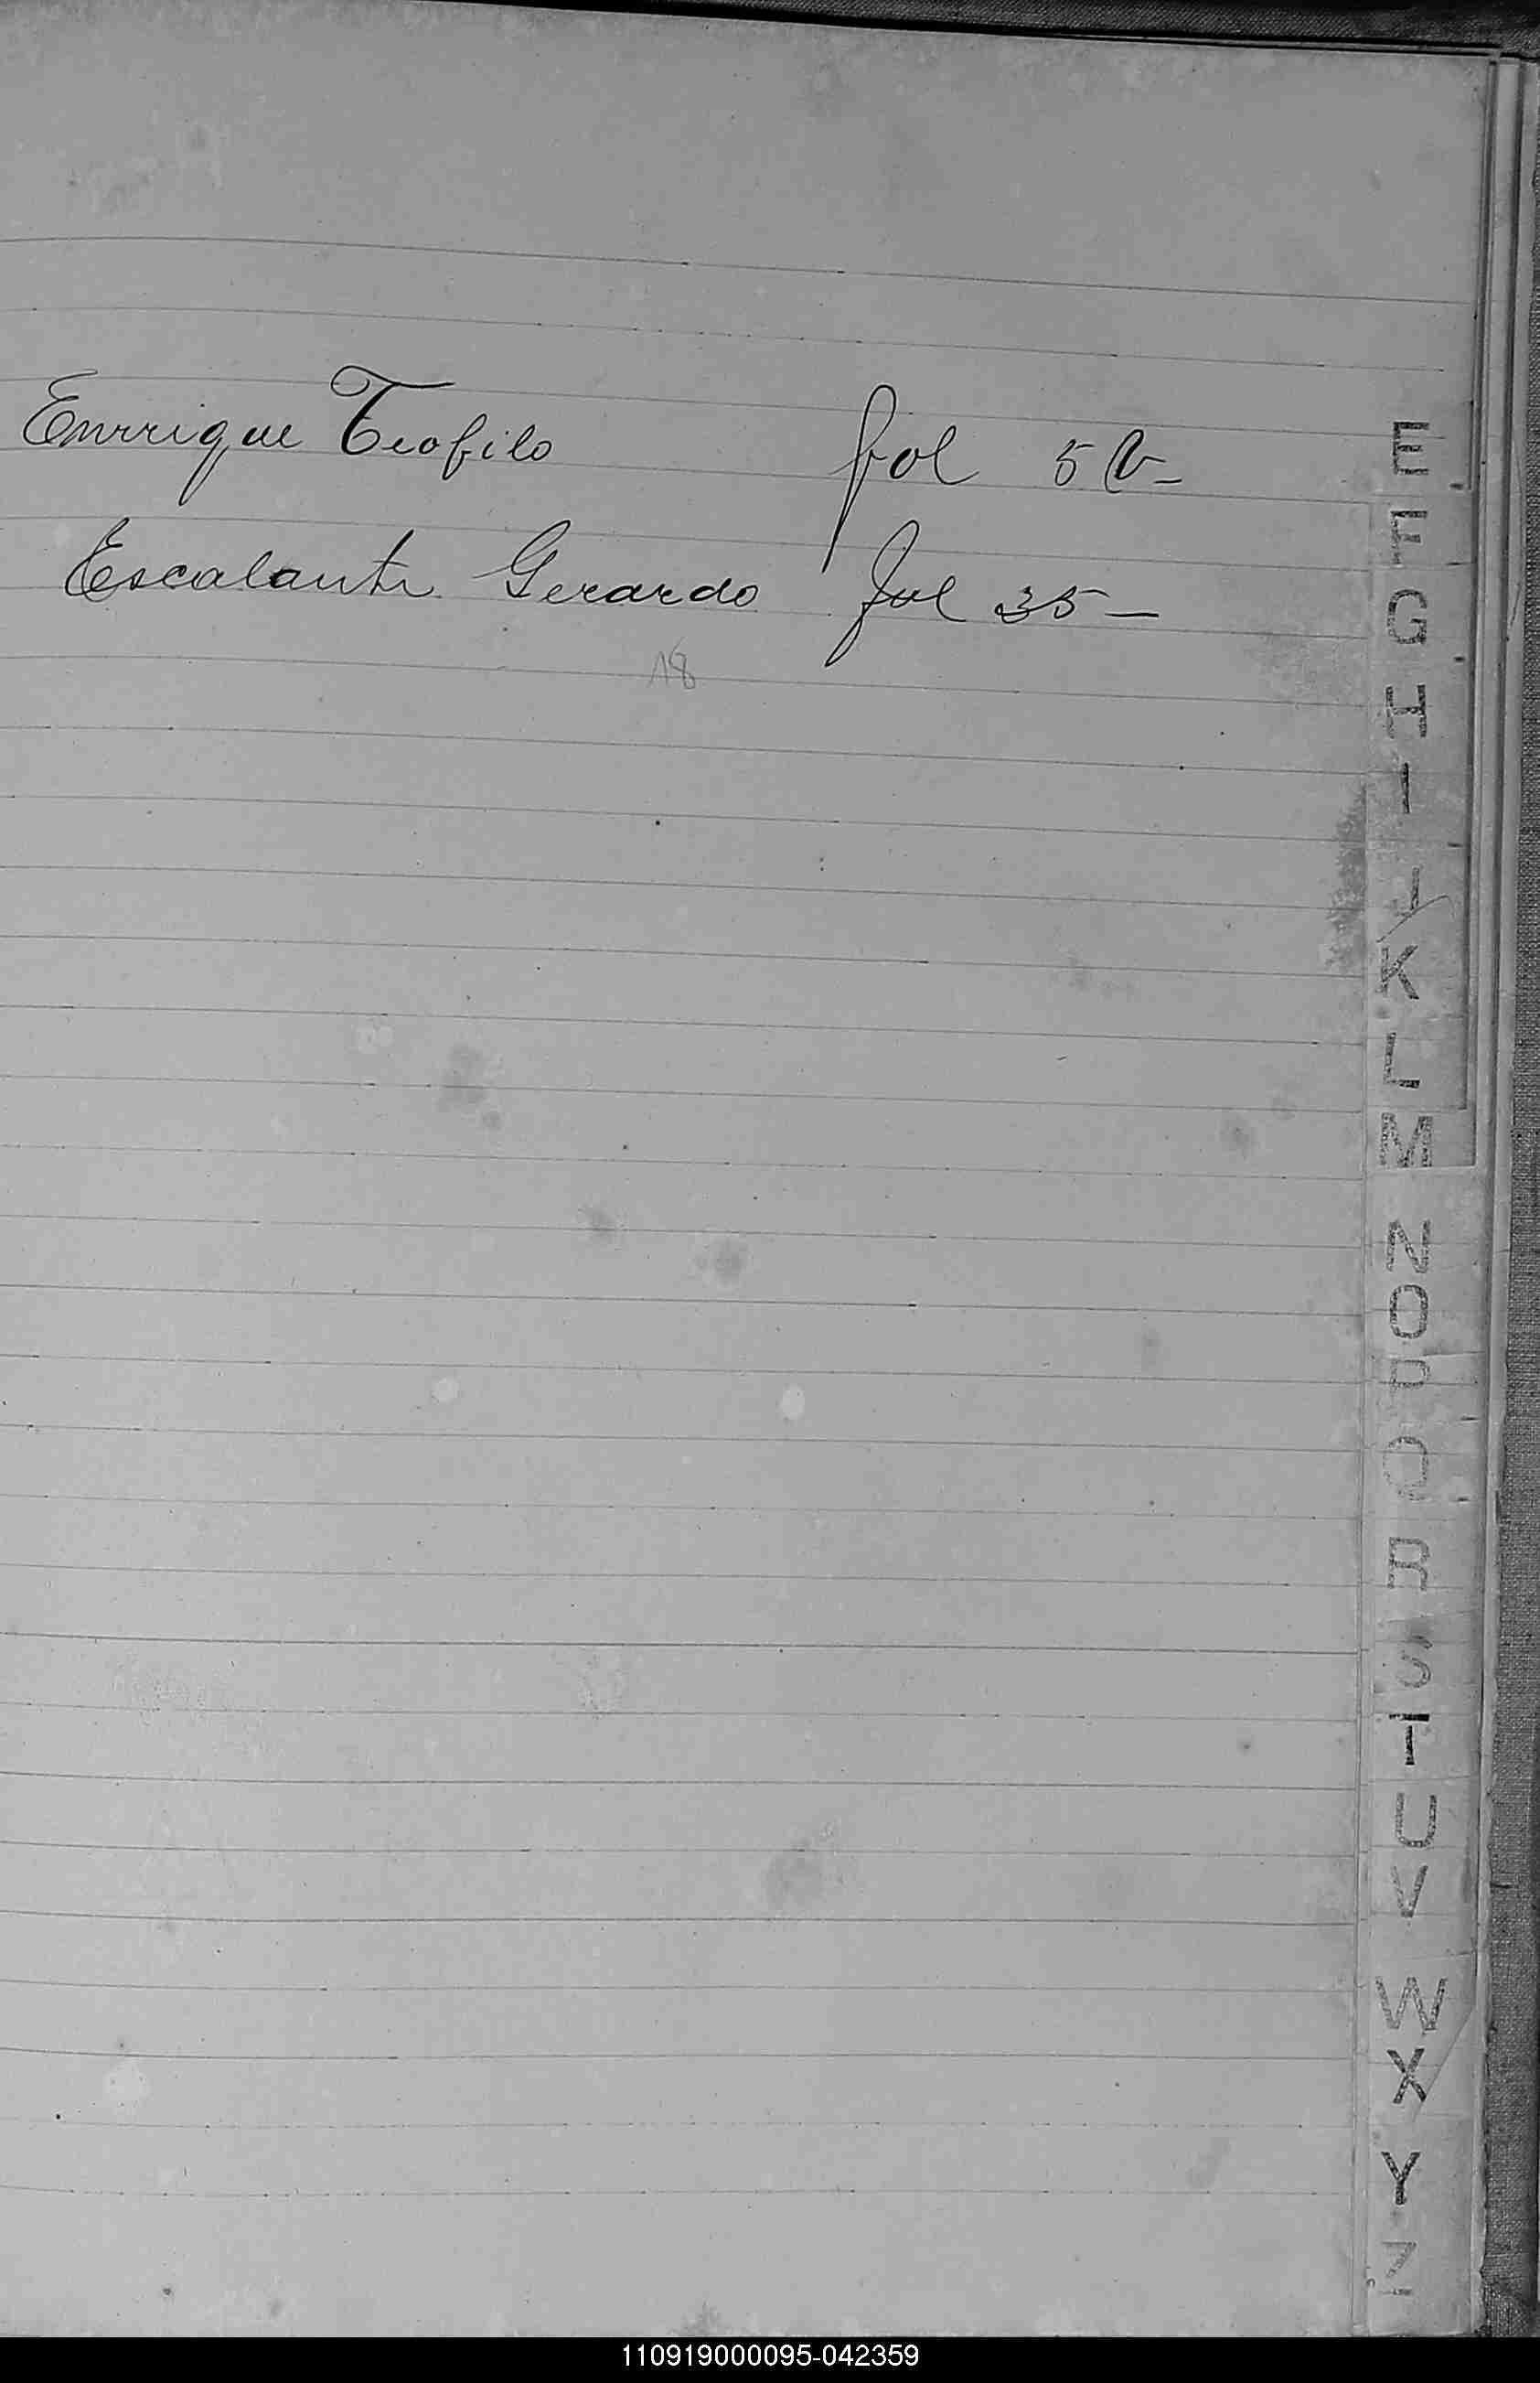 Enrrique Teofilo fol 5 V-
Escalante Gerardo fol 35-
18
E
F
G
H
I
J
K
L
M
N
O
P
Q
R
S
T
U
V
W
X
Y
Z
110919000095-042359